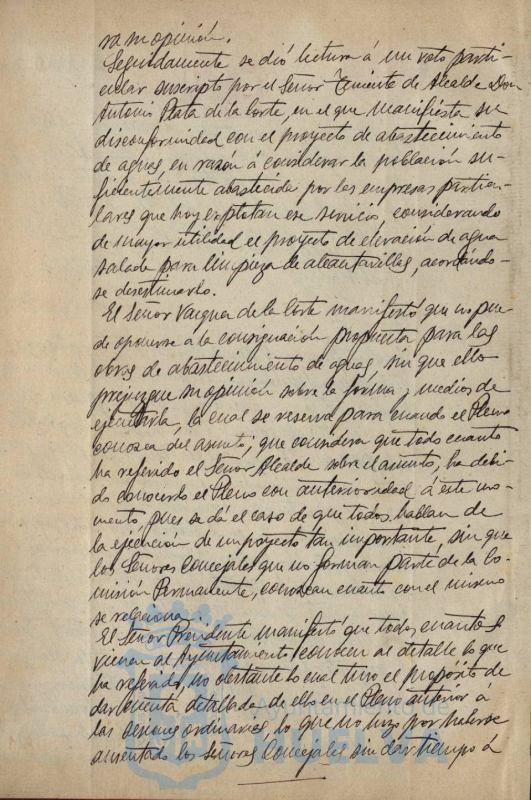 ra su opinión.
Seguidamente se dió lectura á un voto parti-
cular suscripto por el Señor Teniente de Alcalde Don
Antonio Plata de la Corte, en el que manifiesta su
disconformidad con el proyecto de abastecimiento
de aguas, en razón á considerar la población su-
ficientemente abastecida por las empresas particu-
lares que hoy explotan ese servicio, considerando
de mayor utilidad el proyecto de elevación de agua
salada para limpieza de alcantarillas, acordándo-
se desestimarlo.
El Señor Vazquez de la Corte manifestó que no pue-
de oponerse a la consignación propuesta para las
obras de abastecimiento de aguas, sin que ello
prejuzgue su opinión sobre la forma y medios de
ejecutarla, la cual se reserva para cuando el Pleno
conozca del asunto, que considera que todo cuanto
ha referido el Señor Alcalde sobre el asunto, ha debi-
do conocerlo el Pleno con anterioridad á este mo-
mento, pues se dá el caso de que todos hablan de
la ejecución de un proyecto tan importante, sin que
los Señores Concejales que no forman parte de la Co-
misión Permanente, conozcan cuanto con el mismo
se relaciona.
El Señor Presidente manifestó que todos cuantos
vienen al Ayuntamiento conocen al detalle lo que
ha referido, no obstante lo cual tuvo el propósito de
dar cuenta detallada de ello en el Pleno anterior á
las sesiones ordinarias, lo que no hizo por haberse
ausentado los Señores Concejales sin dar tiempo á